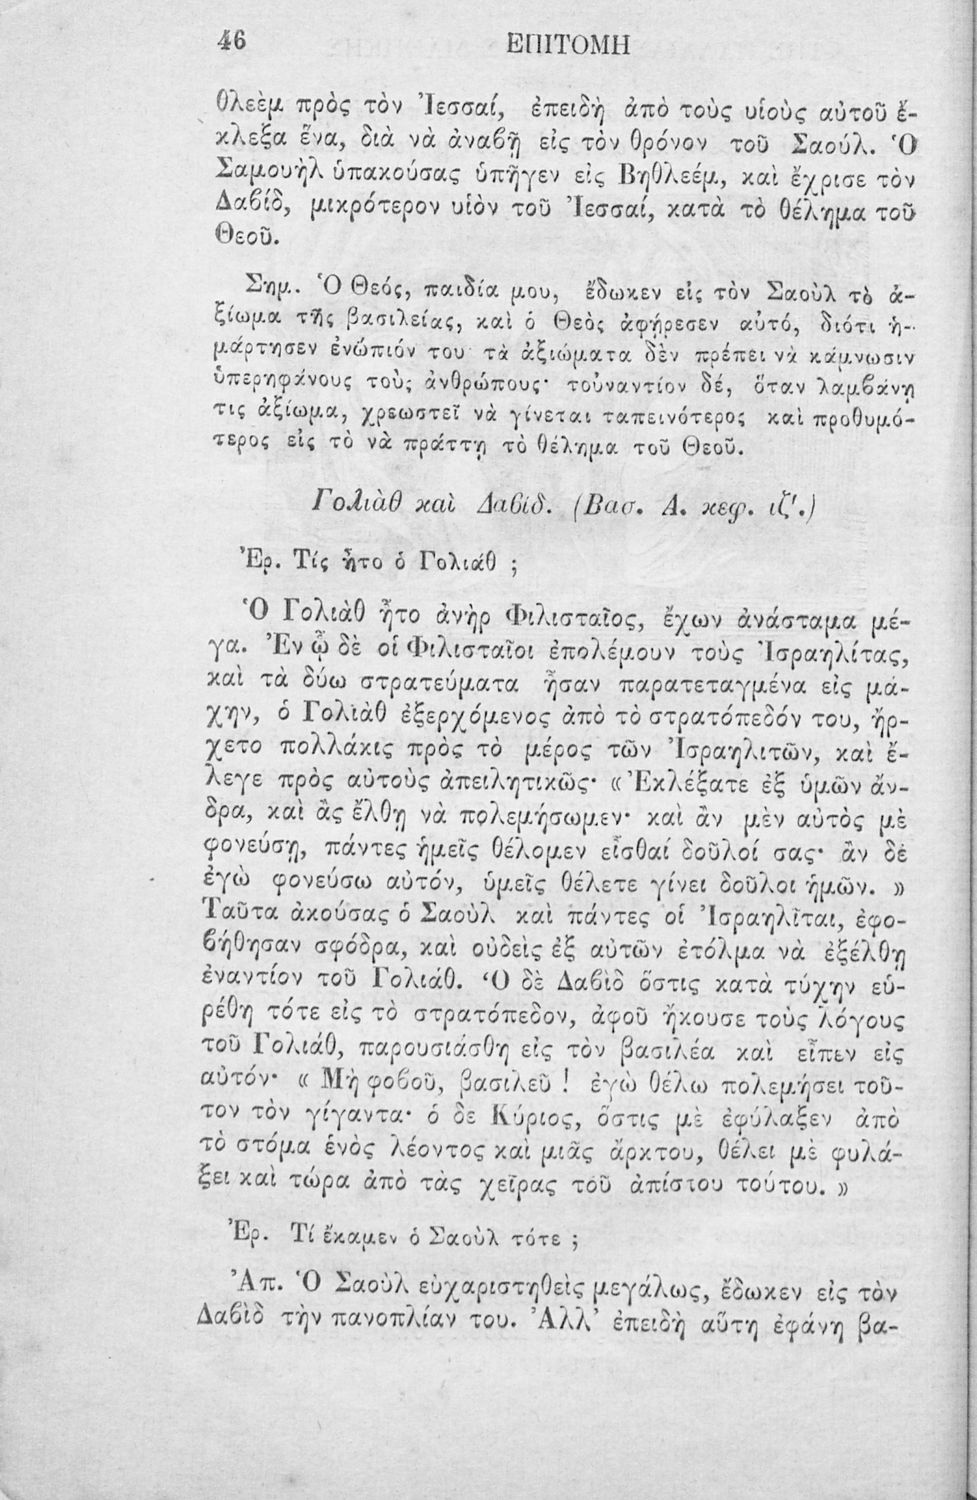 46 ΕΠΙΤΟΜΗ
θλεὲμ πρὸς τὸν Ἰεσσαί, ἐπειδὴ ἀπὸ τοὺς υἱοὺς αὐτοῦ ἔ-
κλεξα ἕνα, διὰ νὰ ἀναβῇ εἰς τὸν θρόνον τοῦ Σαούλ. Ὁ
Σαμουὴλ ὑπακούσας ὑπῆγεν εἰς Βηθλεέμ, καὶ ἔχρισε τὸν
Δαβίδ, μικρότερον υἱὸν τοῦ Ἰεσσαί, κατὰ τὸ θέλημα τοῦ
Θεοῦ.
Σημ. Ὁ Θεός, παιδία μου, ἔδωκεν εἰς τὸν Σαοὺλ τὸ ἀ-
ξίωμα τῆς βασιλείας, καὶ ὁ Θεὸς ἀφῄρεσεν αὐτό, διότι ἡ-
μάρτησεν ἐνώπιόν του· τὰ ἀξιώματα δὲν πρέπει νὰ κάμνωσιν
ὑπερηφάνους τοὺς ἀνθρώπους· τοὐναντίον δέ, ὅταν λαμβάνῃ
τις ἀξίωμα, χρεωστεῖ νὰ γίνεται ταπεινότερος καὶ προθυμό-
τερος εἰς τὸ νὰ πράττῃ τὸ θέλημα τοῦ Θεοῦ.
Γολιὰθ καὶ Δαβίδ. (Βασ. Α. κεφ. ιζ'.)
Ἐρ. Τίς ἦτο ὁ Γολιάθ ;
Ὁ Γολιὰθ ἦτο ἀνὴρ Φιλισταῖος, ἔχων ἀνάσταμα μέ-
γα. Ἐν ᾧ δὲ οἱ Φιλισταῖοι ἐπολέμουν τοὺς Ἰσραηλίτας,
καὶ τὰ δύω στρατεύματα ἦσαν παρατεταγμένα εἰς μά-
χην, ὁ Γολιὰθ ἐξερχόμενος ἀπὸ τὸ στρατόπεδόν του, ἤρ-
χετο πολλάκις πρὸς τὸ μέρος τῶν Ἰσραηλιτῶν, καὶ ἔ-
λεγε πρὸς αὐτοὺς ἀπειλητικῶς· « Ἐκλέξατε ἐξ ὑμῶν ἄν-
δρα, καὶ ἂς ἔλθῃ νὰ πολεμήσωμεν· καὶ ἂν μὲν αὐτὸς μὲ
φονεύσῃ, πάντες ἡμεῖς θέλομεν εἶσθαί δοῦλοί σας· ἂν δὲ
ἐγὼ φονεύσω αὐτόν, ὑμεῖς θέλετε γίνει δοῦλοι ἡμῶν. »
Ταῦτα ἀκούσας ὁ Σαοὺλ καὶ πάντες οἱ Ἰσραηλῖται, ἐφο-
βήθησαν σφόδρα, καὶ οὐδεὶς ἐξ αὐτῶν ἐτόλμα νὰ ἐξέλθῃ
ἐναντίον τοῦ Γολιάθ. Ὁ δὲ Δαβὶδ ὅστις κατὰ τύχην εὑ-
ρέθη τότε εἰς τὸ στρατόπεδον, ἀφοῦ ἤκουσε τοὺς λόγους
τοῦ Γολιάθ, παρουσιάσθη εἰς τὸν βασιλέα καὶ εἶπεν εἰς
αὐτόν· « Μὴ φοβοῦ, βασιλεῦ ! ἐγὼ θέλω πολεμήσει τοῦ-
τον τὸν γίγαντα· ὁ δε Κύριος, ὅστις μὲ ἐφύλαξεν ἀπὸ
τὸ στόμα ἑνὸς λέοντος καὶ μιᾶς ἄρκτου, θέλει μὲ φυλά-
ξει καὶ τώρα ἀπὸ τὰς χεῖρας τοῦ ἀπίστου τούτου. »
Ἐρ. Τί ἔκαμεν ὁ Σαοὺλ τότε ;
Ἀπ. Ὁ Σαοὺλ εὐχαριστηθεὶς μεγάλως, ἔδωκεν εἰς τὸν
Δαβὶδ τὴν πανοπλίαν του. Ἀλλ' ἐπειδὴ αὕτη ἐφάνη βα-